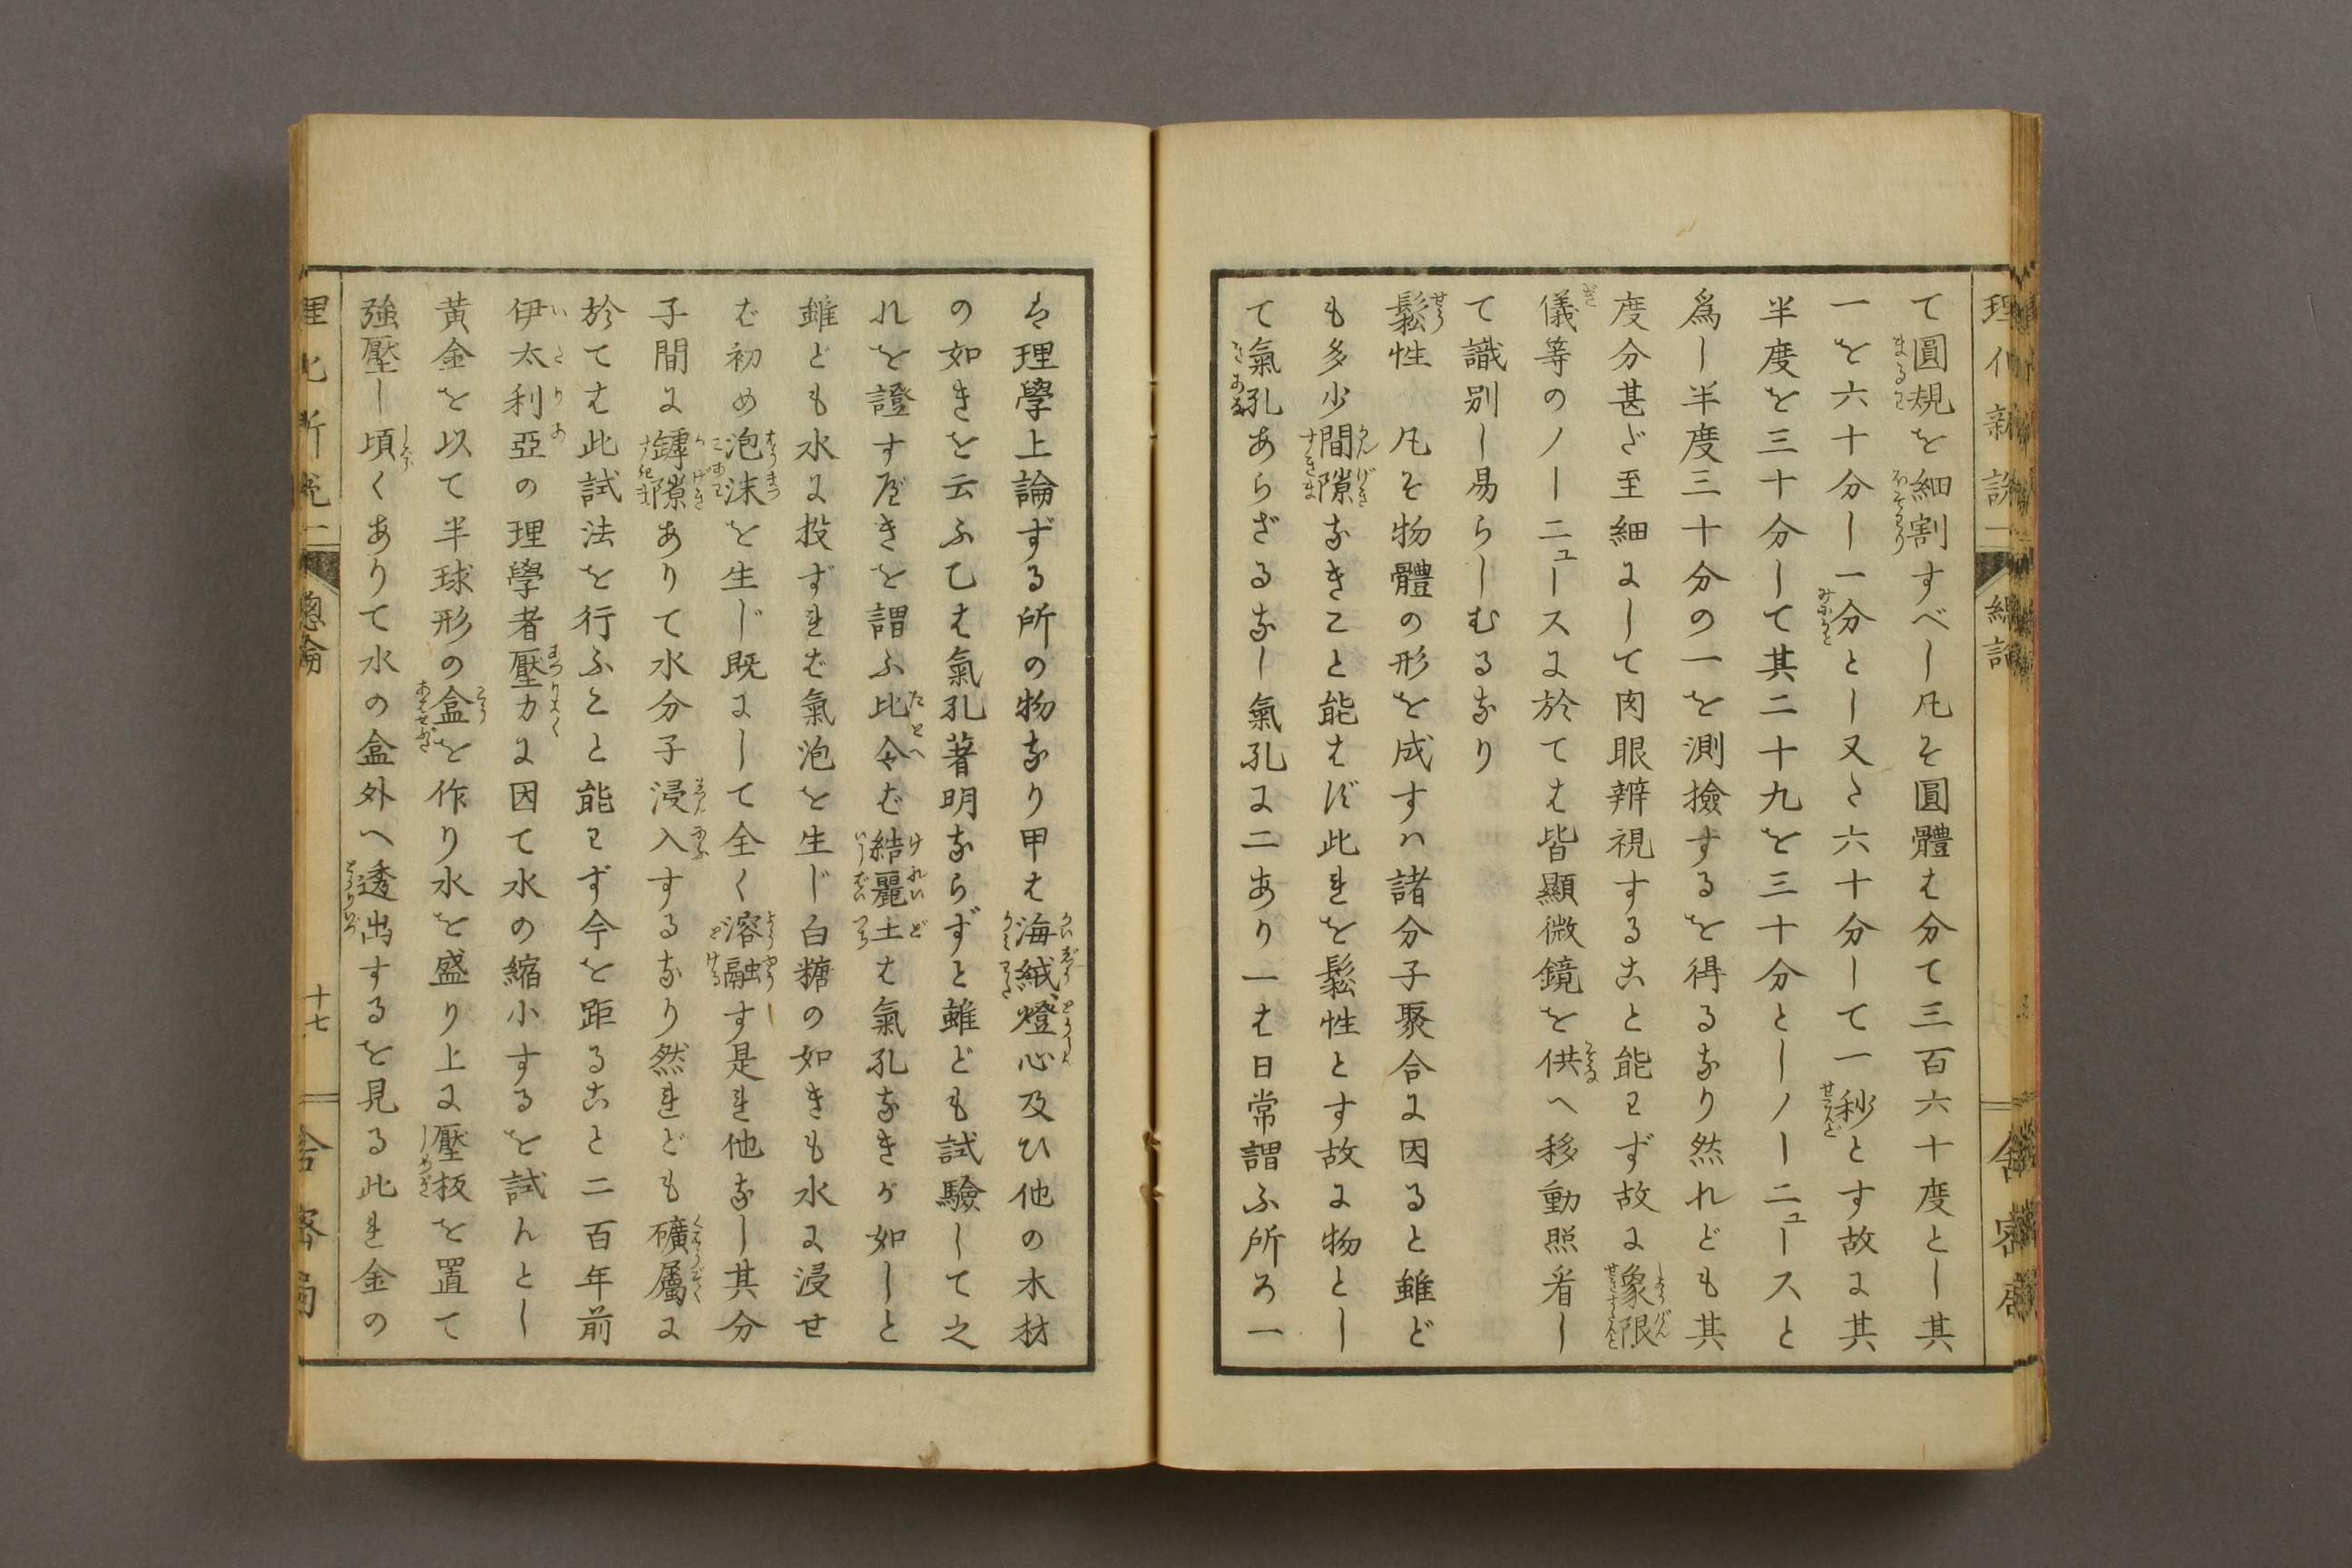 理化新説二 總論
舎密局
て圓規を細割すべし凡そ圓體は分て三百六十度とし其
一を六十分し一分とし又た六十分して一秒とす故に其
半度を三十分して其二十九を三十分としノーニュースと
爲し半度三十分の一を測撿するを得るなり然れども其
度分甚だ至細にして肉眼辨視すること能はず故に象限
儀等のノーニュースに於ては皆顯微鏡を供へ移動照看し
て識別し易らしむるなり
鬆性 凡そ物體の形を成すハ諸分子聚合に因ると雖ど
も多少間隙なきこと能はず此れを鬆性とす故に物とし
て氣孔あらざるなし氣孔に二あり一は日常謂ふ所ろ一
は理學上論ずる所の物なり甲は海絨燈心及ひ他の木材
の如きを云ふ乙は氣孔著明ならずと雖ども試驗して之
れを證すべきを謂ふ比令ば結麗土は氣孔なきが如しと
雖ども水に投ずれば氣泡を生じ白糖の如きも水に浸せ
ば初め泡沫を生じ既にして全く溶融す是れ他なし其分
子間に罅隙ありて水分子浸入するなり然れども礦屬に
於ては此試法を行ふこと能はず今を距ること二百年前
伊太利亞の理學者壓力に因て水の縮小するを試んとし
黄金を以て半球形の盒を作り水を盛り上に壓板を置て
強壓し頃くありて水の盒外へ透出するを見る此れ金の
理化新説二 總論 十七 舎密局